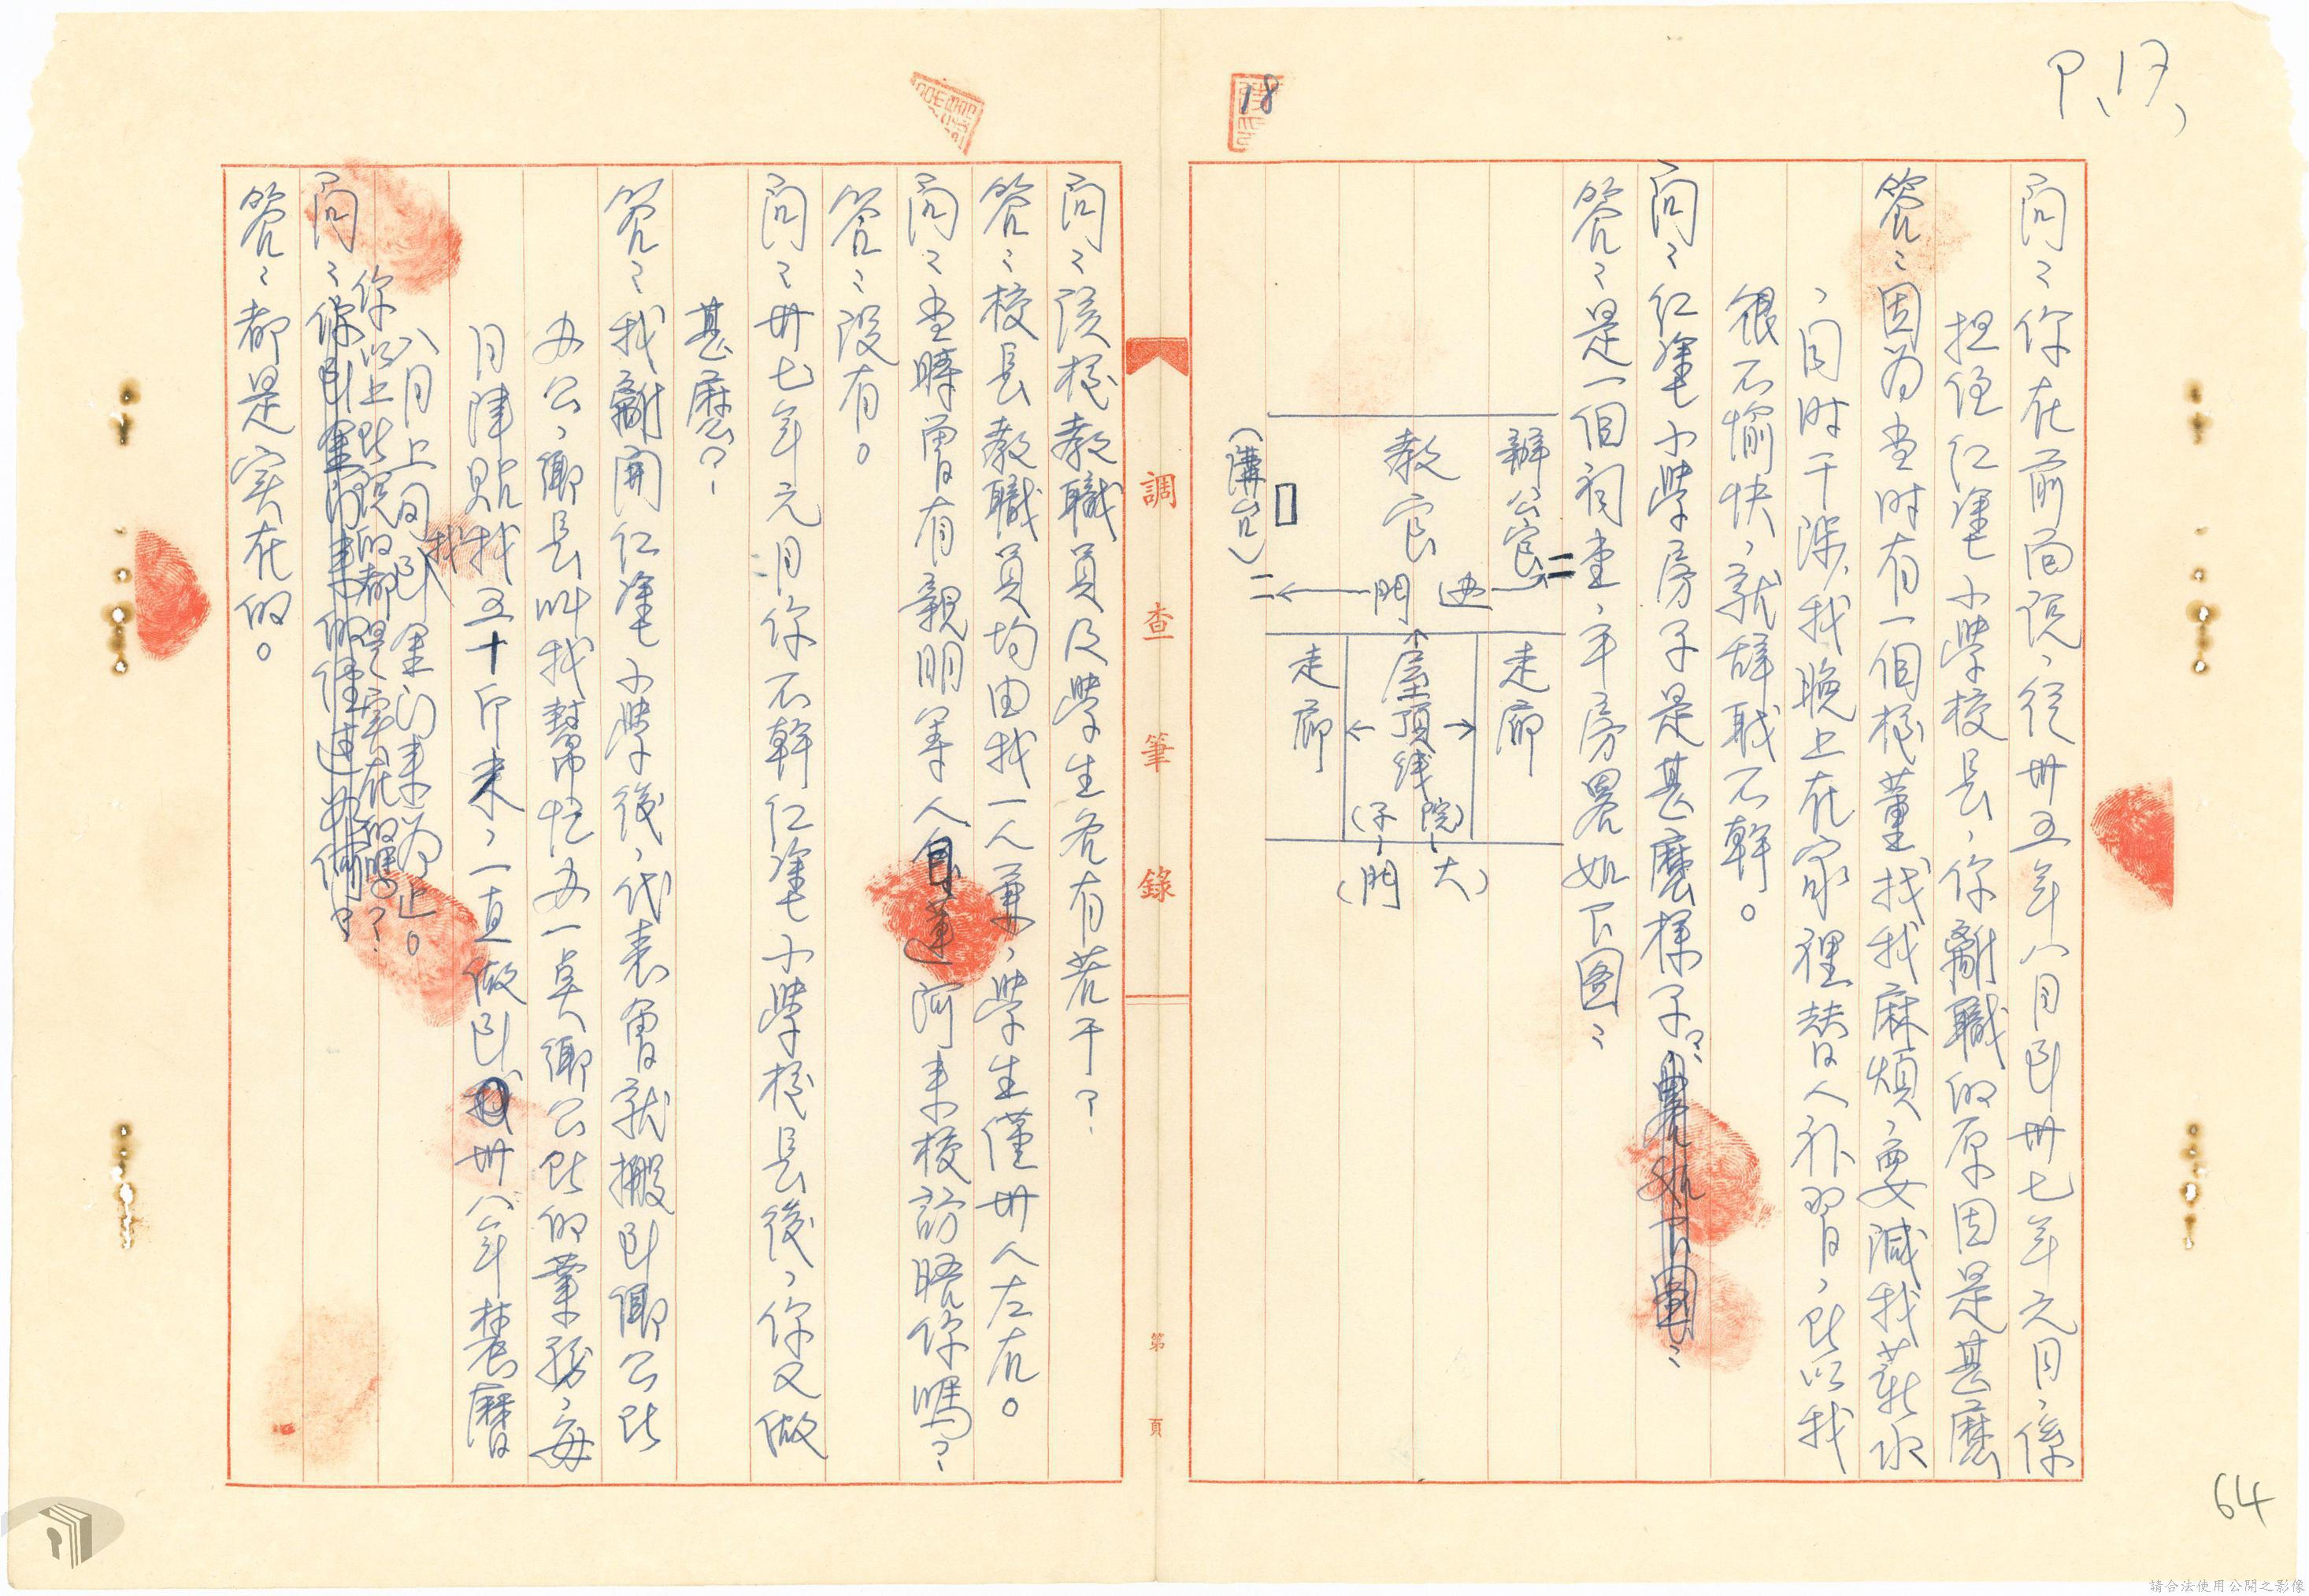 P.17.
18
問：你在前面說，從卅五年八月到卅七年元月，係
担任仁塗小學校長，你離職的原因是甚麼
答：因为当时有一個校董找我麻煩，要減我薪水
，同时干涉我晚上在家裡替人补習，所以我
很不愉快，就辞职不幹。
問：仁塗小學房子是甚麼樣子？畧如下圖：
答：是一個祠堂，平房畧如下圖：
辦公室
教室
（講台）
边門
走廊
屋頂线
（院子）
走廊
（大門）
調查筆錄
第 頁
問：該校教職員及學生各有若干？
答：校長教職員均由我一人兼，學生僅卅人左右。
問：当時曾有親朋等人 河来校訪晤你嗎？
答：沒有。
問：卅七年元月你不幹仁塗小學校長後，你又做
甚麼？
答：我離開仁塗小學後，代表會就搬到鄉公所
办公，鄉長叫我幫忙办一点鄉公所的業務，每
月津貼我五十斤米，一直做到卅八年農曆
八月上旬我到金门来为止。
問：你以上所說的都是实在的嗎？
答：都是实在的。
64
請合法使用公開之影像